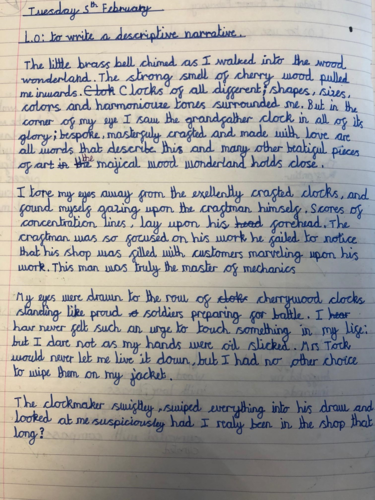 Tuesday 5th February
L.O: to write a descriptive narrative.
The little brass bell chimed as I walked into the wood
wonderland. The strong smell of cherry wood pulled
me inwards. Clok Clocks of all different; shapes, sizes,
colors and harmoniouze tones surrounded me. But in the
corner of my eye I saw the grandfather clock in all of its
glory; bespoke, masterfuly crafted and made with love are
all words that describe this and many other beatiful pieces
of art in the the majical wood wonderland holds close.
I tore my eyes away from the exellently crafted clocks, and
found myself gazing upon the craftman himself. Scores of
concentration lines, lay upon his head forehead. The
craftman was so focused on his work he failed to notice
that his shop was filled with customers marveling upon his
work. This man was truly the master of mechanics
My eyes were drawn to the row of cloks cherrywood clocks
standing like proud soldiers preparing for battle. I hear
hav never felt such an urge to touch something in my life:
but I dare not as my hands were oil slicked. Mrs Tock
would never let me live it down, but I had no other choice
to wipe them on my jacket.
The clockmaker swiftley, swiped everything into his draw and
looked at me suspiciously had. I realy been in the shop that
long?